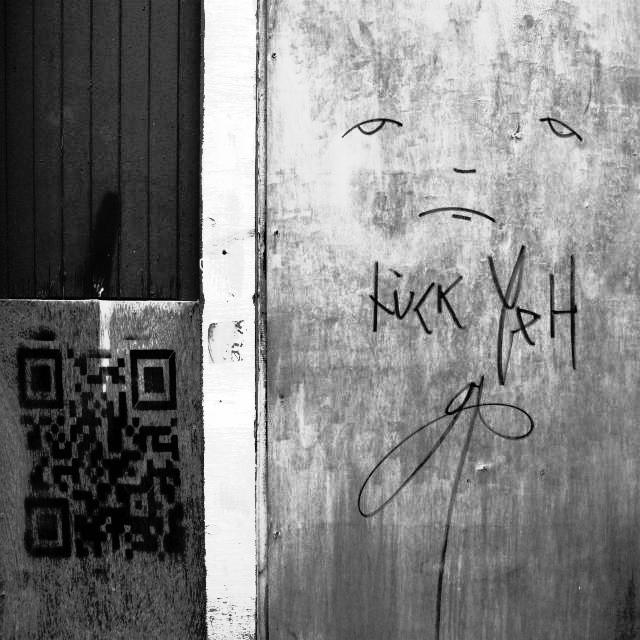 FUCK YAH